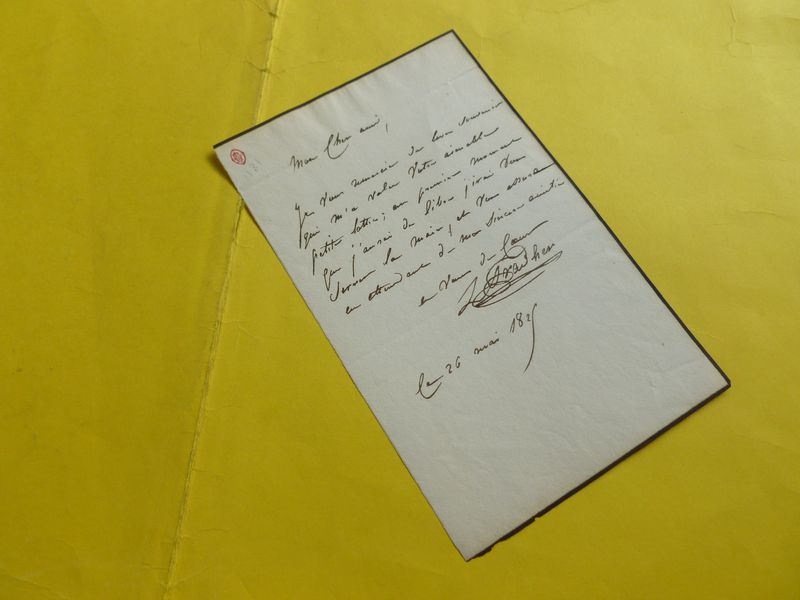 131
Mon Cher ami,
Je vous remercie du bon souvenir
qui m'a valu votre aimable
petite lettre; au premier moment
que j'aurai de libre j'irai vous
serrer la main, et vous assurer
en attendant de mon sincère amitié
et vous de Cœur
le 26 mai 1825